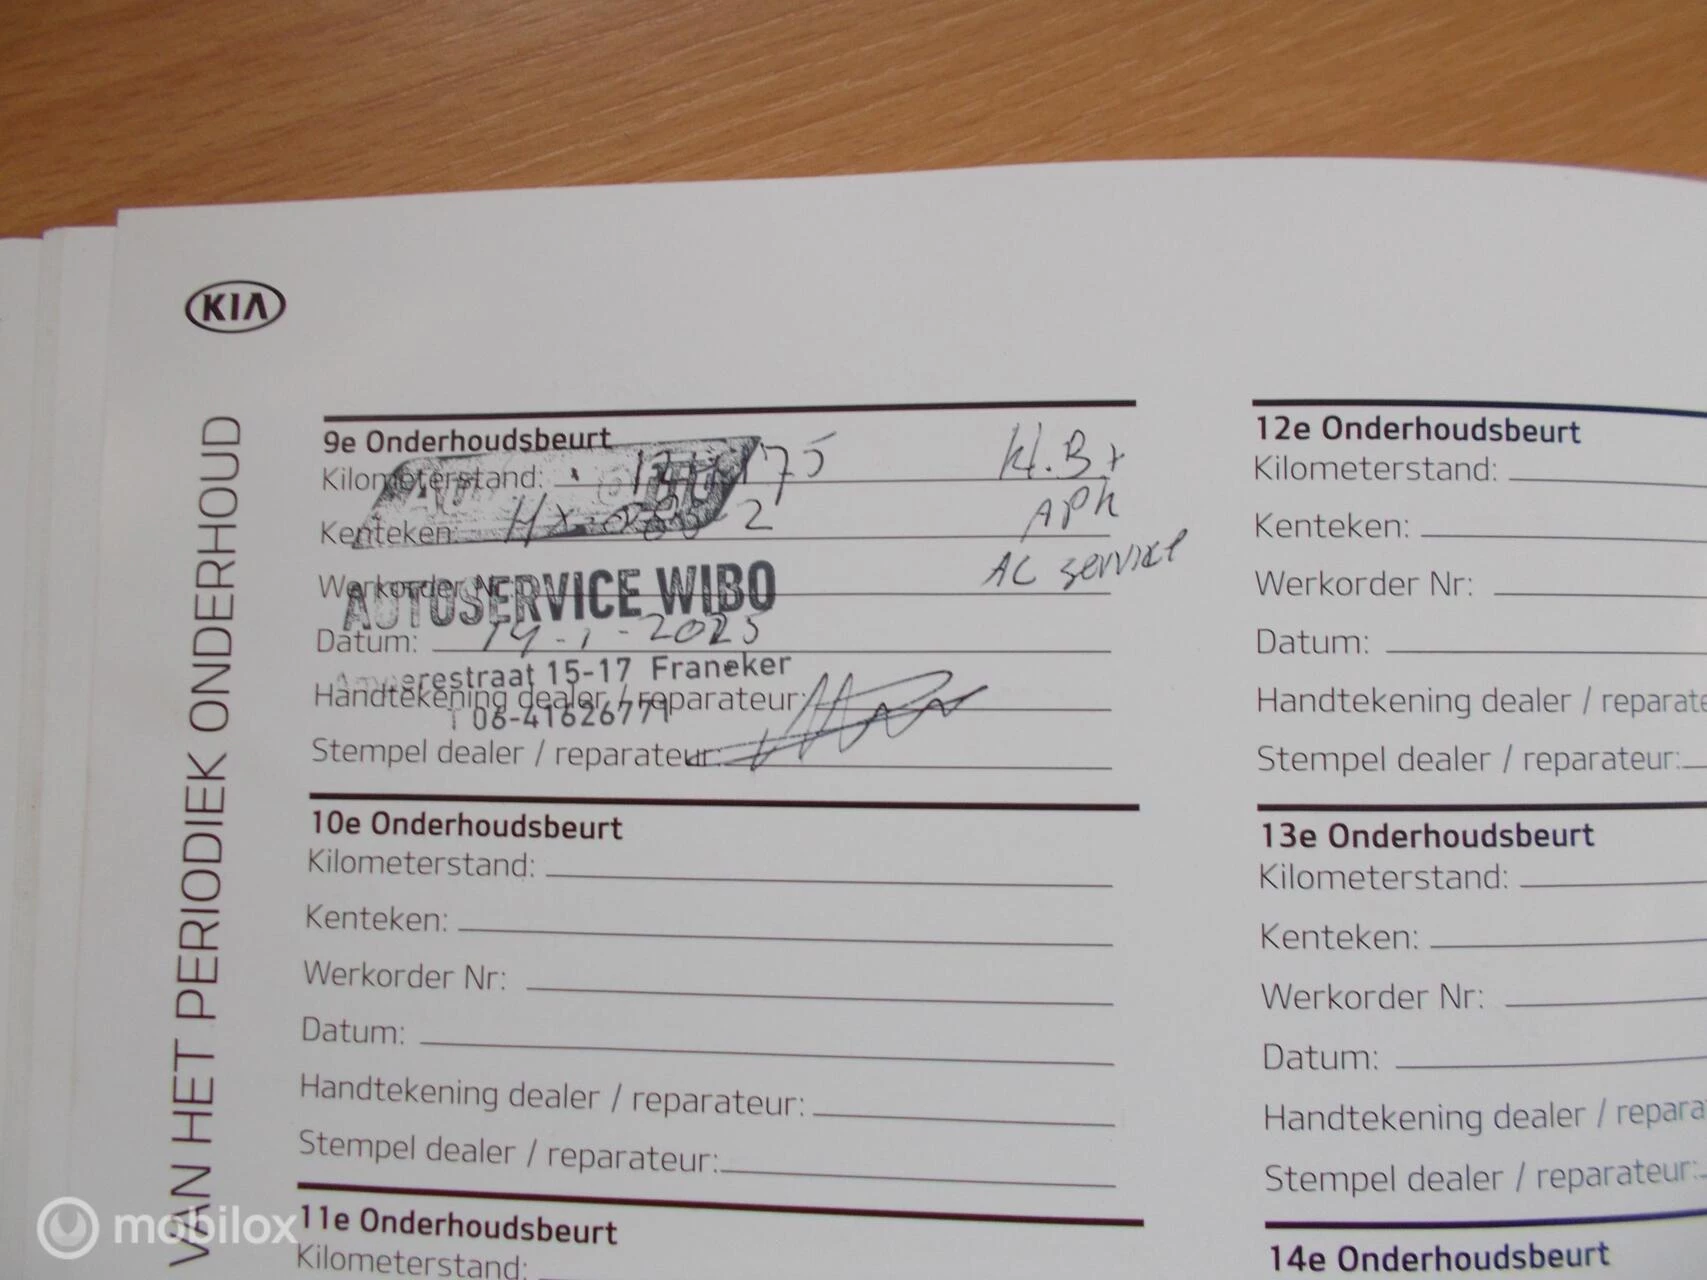 KIA
VAN HET PERIODIEK ONDERHOUD
9e Onderhoudsbeurt
Kilometerstand: 75
Kl. B +
Kenteken: 2
APK
Werkorder Nr:
AUTOSERVICE WIBO
AC service
Datum: 14-1-2025
erestraat 15-17 Franeker
Handtekening dealer / reparateur:
T 06-41626771
Stempel dealer / reparateur:
10e Onderhoudsbeurt
Kilometerstand:
Kenteken:
Werkorder Nr:
Datum:
Handtekening dealer / reparateur:
Stempel dealer / reparateur:
11e Onderhoudsbeurt
Kilometerstand:
12e Onderhoudsbeurt
Kilometerstand:
Kenteken:
Werkorder Nr:
Datum:
Handtekening dealer / reparate
Stempel dealer / reparateur:
13e Onderhoudsbeurt
Kilometerstand:
Kenteken:
Werkorder Nr:
Datum:
Handtekening dealer / repara
Stempel dealer / reparateur:
14e Onderhoudsbeurt
mobilox